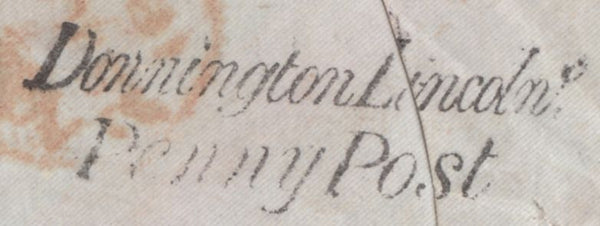 Donnington Lincolnsᵉ
Penny Post